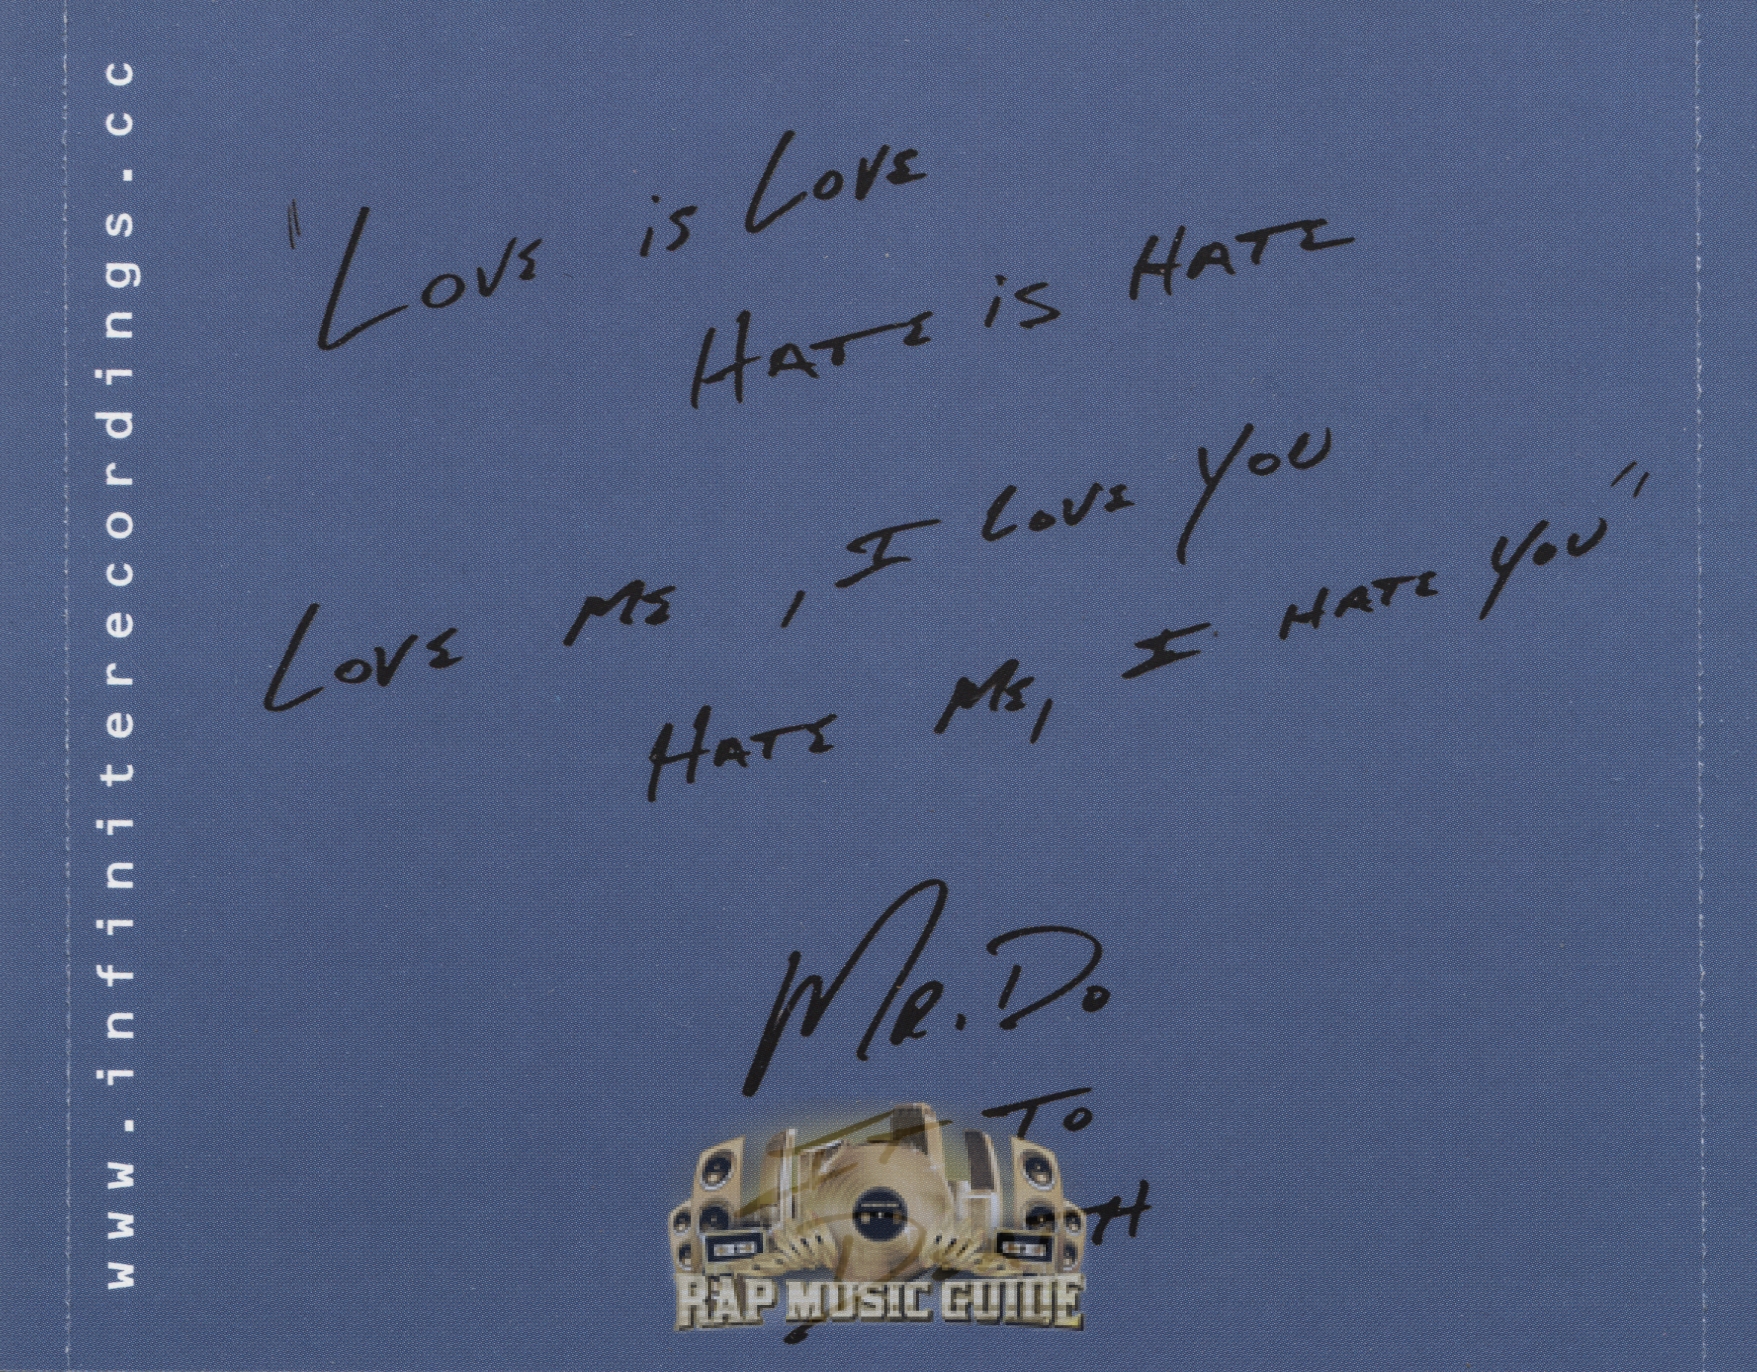 www.infiniterecordings.cc
"LOVE is LOVE
HATE is HATE
LOVE ME, I LOVE YOU
HATE ME, I HATE YOU"
MR. DO
TO
RAP MUSIC GUIDE